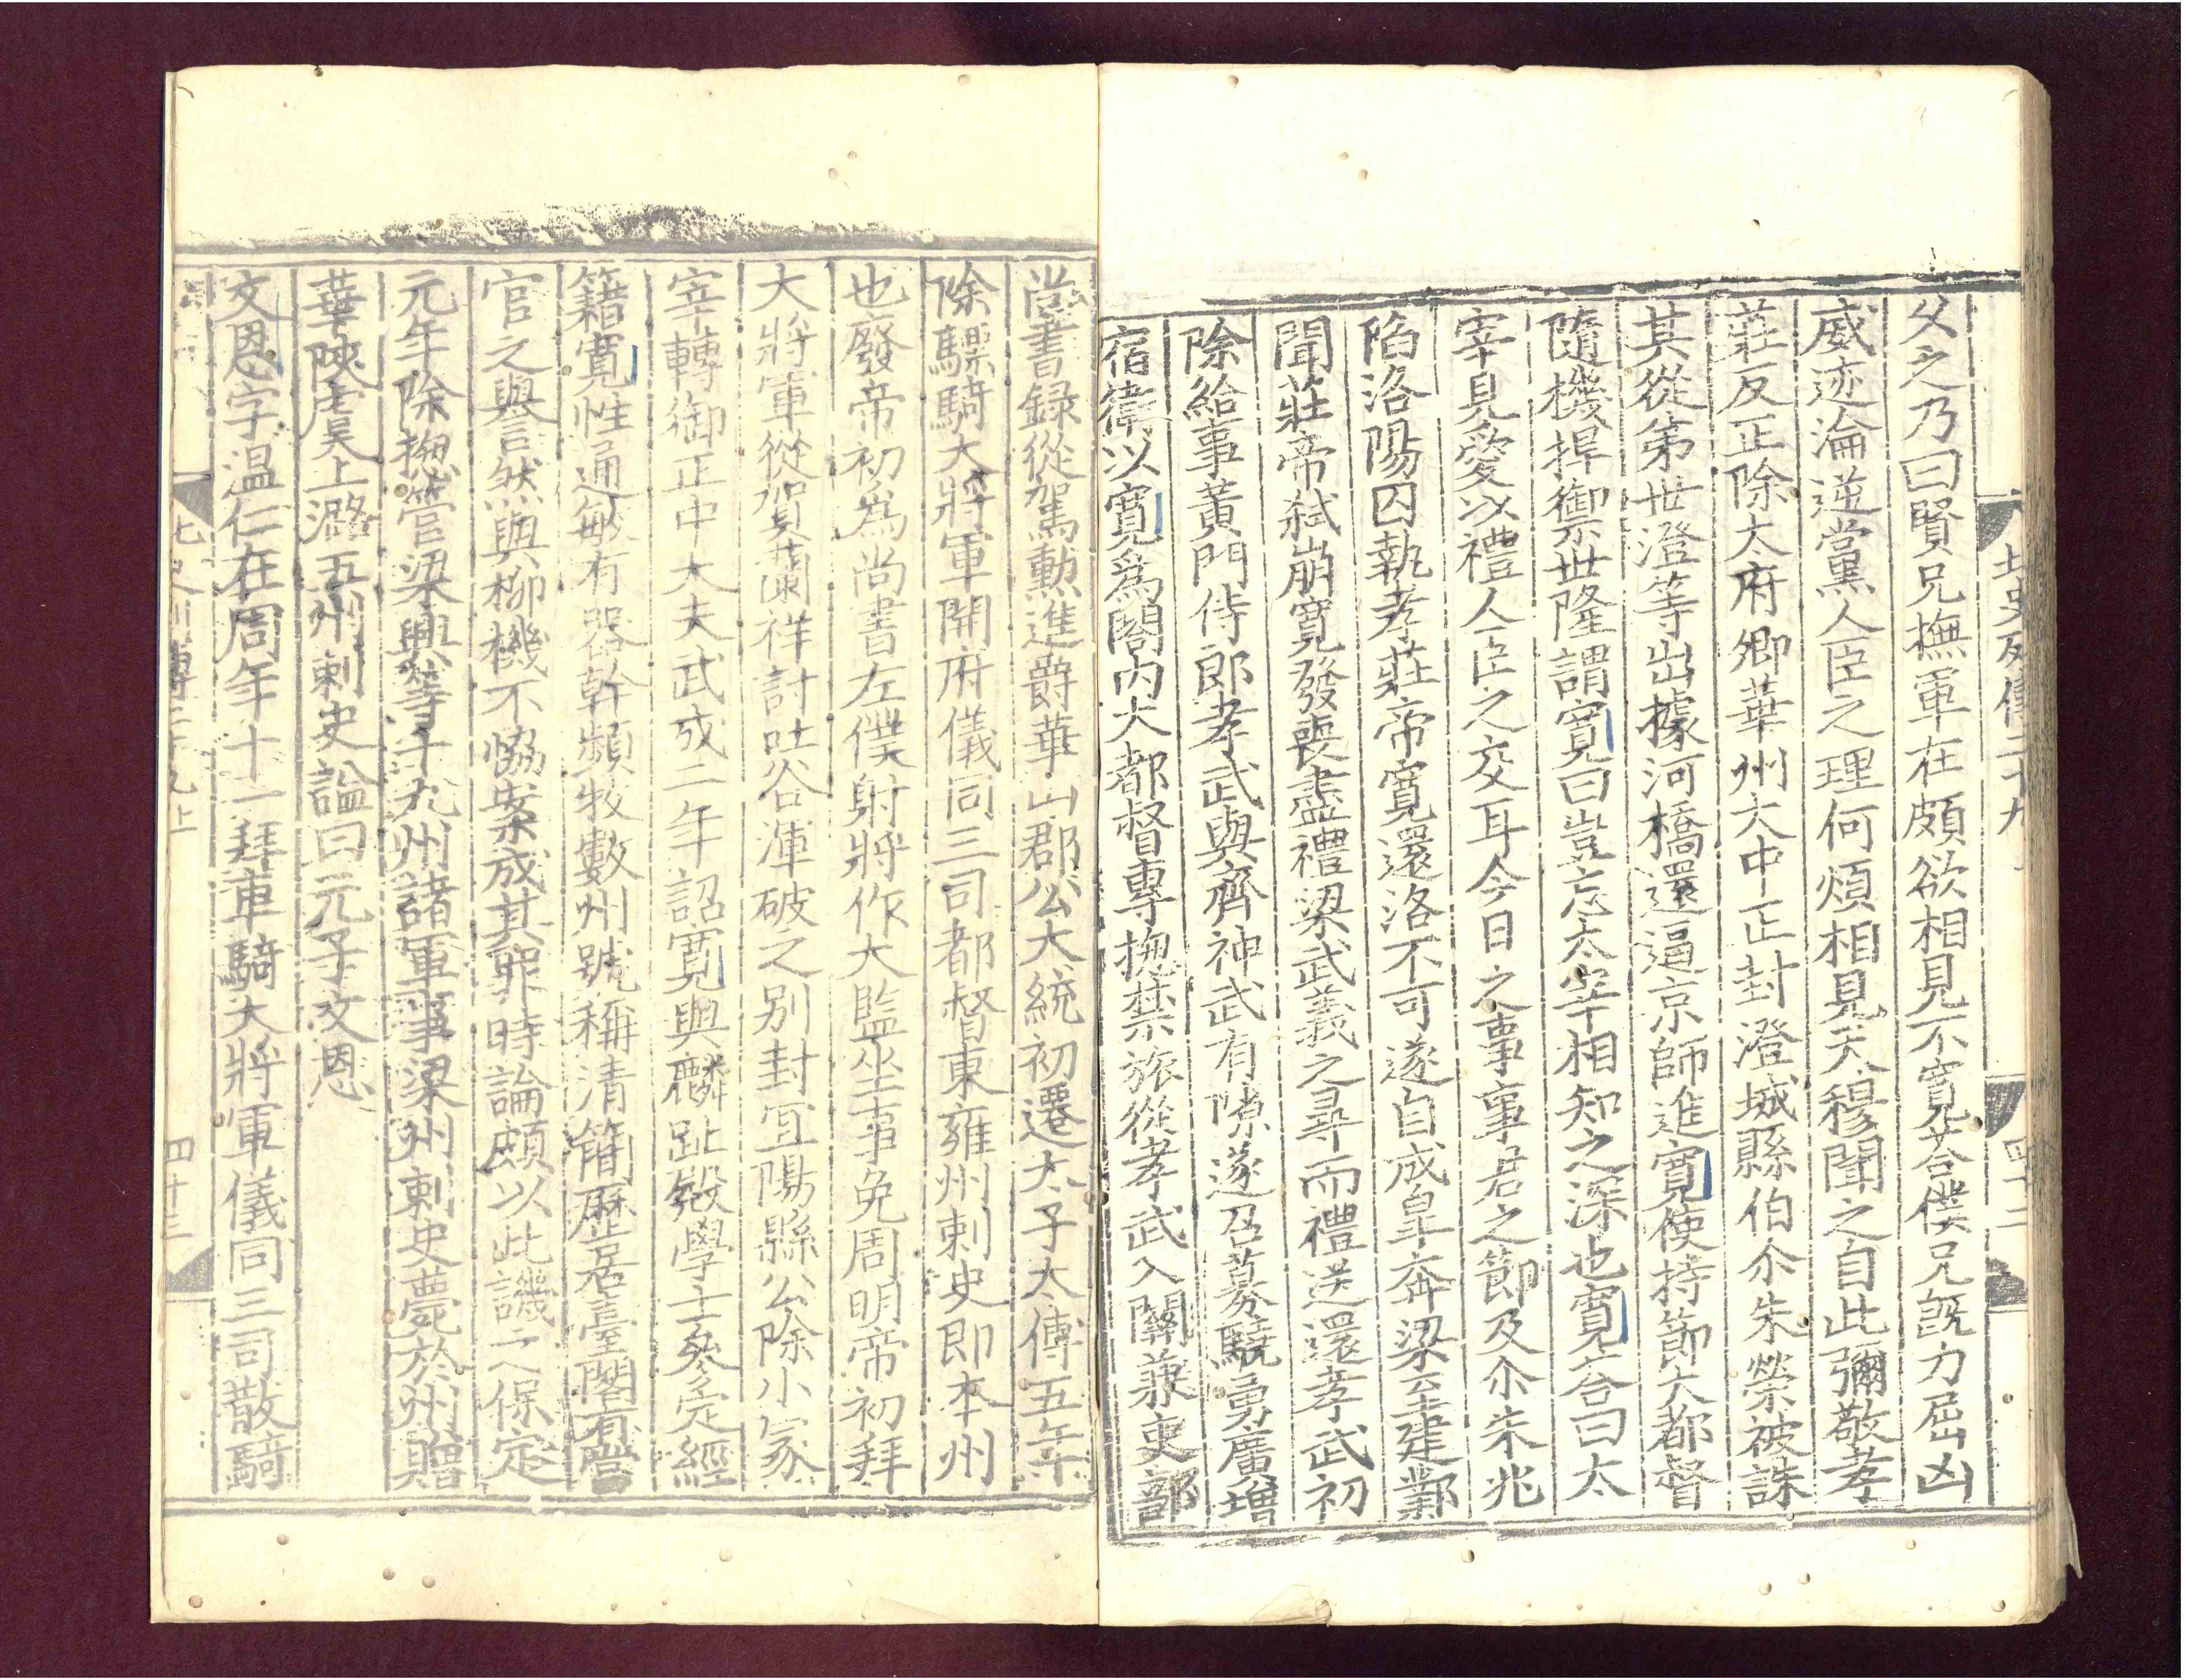 北史列傳二十九
四十二
父之乃曰賢兄撫軍在頗欲相見不寬荅僕兄旣力屈凶
威迹淪逆黨人臣之理何煩相見天穆聞之自此彌敬孝
莊反正除太府卿華州大中正封澄城縣伯尒朱榮被誅
其從弟世澄等出據河橋還逼京師進寬使持節大都督
隨機捍御世隆謂寬曰豈忘太宰相知之深也寬荅曰太
宰見愛以禮人臣之交耳今日之事事君之節及尒朱兆
陷洛陽囚執孝莊帝寬還洛不可遂自成皐奔梁至建鄴
聞莊帝弑崩寬發喪盡禮梁武義之尋而禮送還孝武初
除給事黃門侍郎孝武與齊神武有隙遂召募驍勇廣增
宿衛以寬爲閤內大都督專揔禁旅從孝武入關兼吏部
尚書録從駕勳進爵華山郡公大統初遷太子太傅五年
除驃騎大將軍開府儀同三司都督東雍州刺史即本州
也廢帝初爲尚書左僕射將作大監坐事免周明帝初拜
大將軍從賀蘭祥討吐谷渾破之别封宜陽縣公除小冢
宰轉御正中大夫武成二年詔寬與麟趾殿學士參定經
籍寬性通敏有器幹頻牧數州號稱清簡歷居臺閣有當
官之譽然與柳機不恊案成其罪時論頗以此譏之保定
元年除揔管梁興等十九州諸軍事梁州刺史薨於州贈
華陝虞上潞五州刺史諡曰元子文恩
文恩字温仁在周年十一拜車騎大將軍儀同三司散騎
北史列傳二十九上
四十三